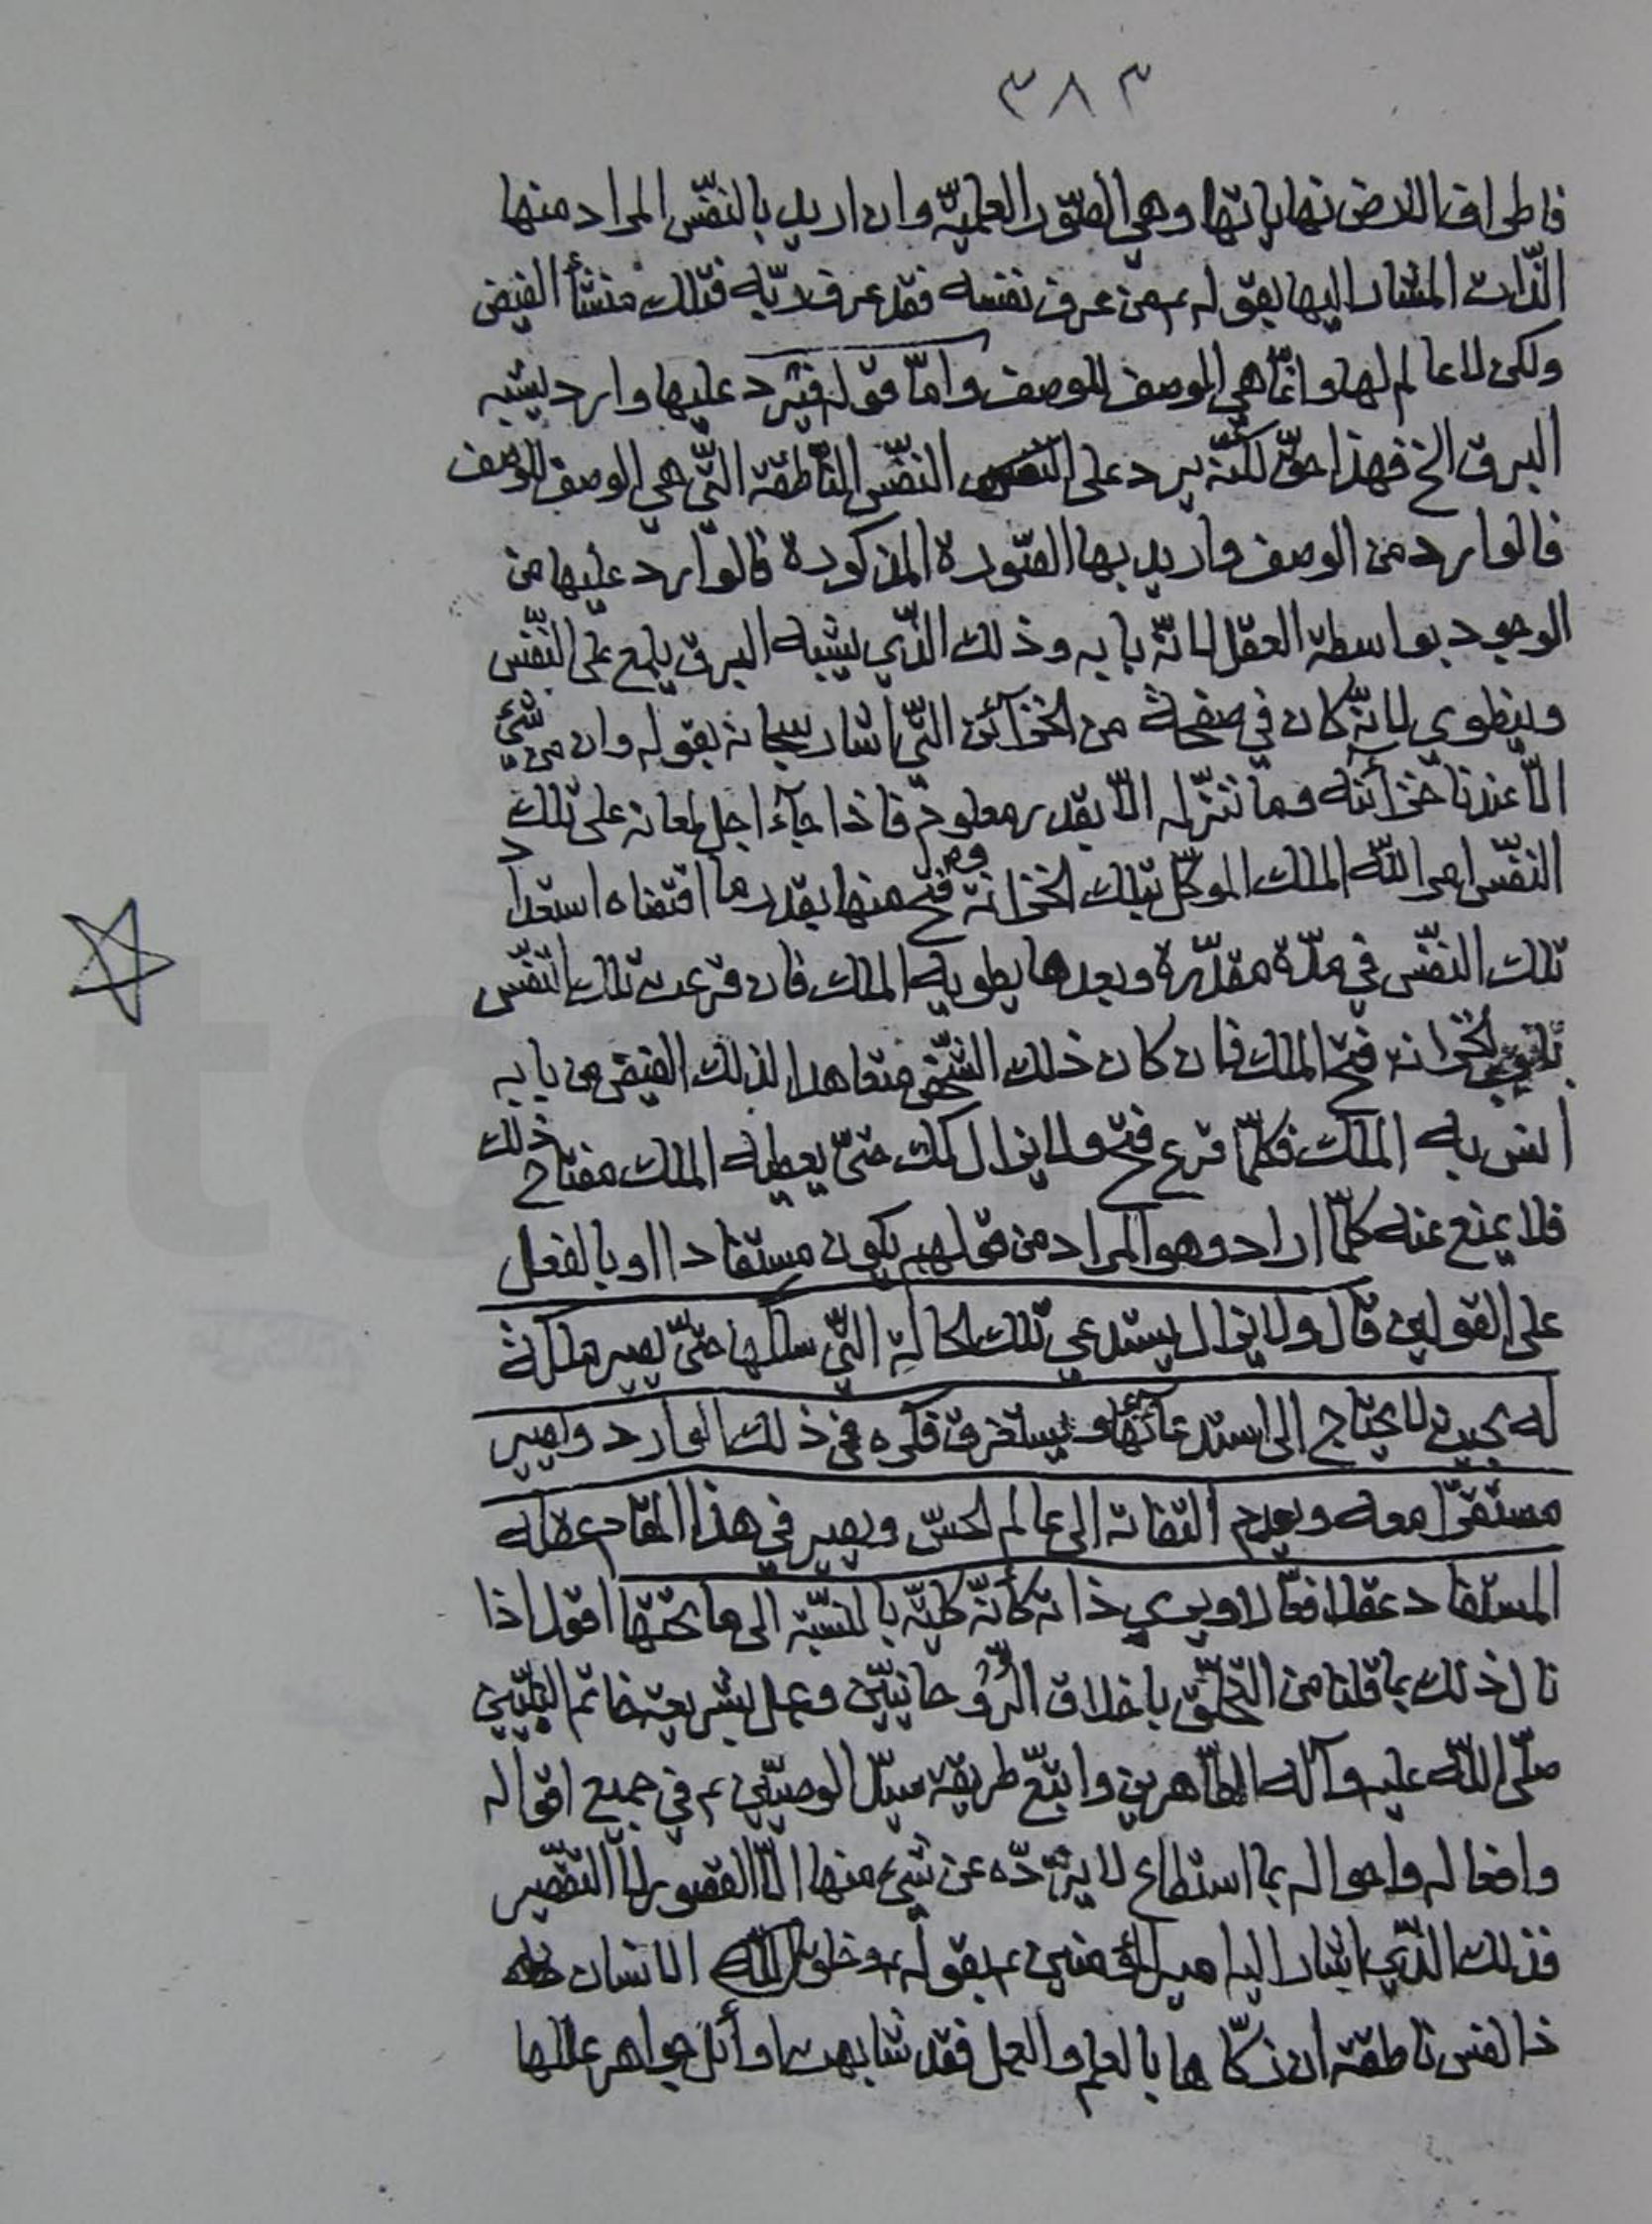 ٣٨٣
فاطراف الارض نهاياتها وهي الصّور العلميّة وان اريد بالنفّس المراد منها
الذّات المشار اليها بقوله ع من عرف نفسه فقد عرف ربّه فتلك منشأ الفيض
ولكن لا عالم لها وانّما هي الموصف للوصف وامّا قوله فيرد عليها وارد يشبه
البرق الخ فهذا حقّ لكنّه يرد على النفّس النّاطقة التّي هي الوصف للوصف
فالوارد من الوصف واريد بها الصّورة المذكورة فالوارد عليها من
الوجود بواسطة العقل لانّه بابه وذلك الذّي يشبه البرق يلمع على النفّس
وينطوي لانّه كان في صفحة من الخزآئن التّي اشار سبحانه بقوله وان من شيء
الّا عندنا خزآئنه وما ننزّله الّا بقدر معلوم فاذا جآء اجل لمعانه على تلك
النفّس امر اللّه الملك الموكّل بتلك الخزانة وفتح منها بقدر ما اقتضاه استعداد
تلك النفّس في مدّة مقدّرة وبعدها يطويه الملك فان قرعت تلك النفّس
تلك الخزانه فتح الملك فان كان ذلك الشّخص متعاهدا لذلك الفيض من بابه
انس به الملك فكلّما قرع فتح ولا يزال كك حتّى يعطيه الملك مفتاح ذلك
فلا يمنع عنه كلّما اراد وهو المراد من قولهم يكون مستفادا او بالفعل
على القولين قال ولا يزال يستدعي تلك الحالة التّي سلكها حتّى يصير ملكة
له بحيث لا يحتاج الى استدعآئها ويستغرق فكره في ذلك الوارد ويصير
مستقرّا معه ويعدم التفاته الى عالم الحسّ ويصير في هذا المقام عقله
المستفاد عقلا فعّالا ويرى ذاته كأنّه كليّة بالنسّبة الى ما تحتها اقول اذا
نال ذلك بما قلنا من التّخلّق باخلاق الرّوحانييّن وعمل بشريعة خاتم النبّييّن
صلّى اللّه عليه وآله الطّاهرين واتبّع طريقة سيّد الوصييّن ع في جميع اقواله
وافعاله واحواله بما استطاع لا يردّه عن شيء منها الّا القصور لا التقّصير
فذلك الذّي اشار اليه امير المؤمنين ع بقوله وخلق اللّه الانسان
ذا نفس ناطقة ان زكّاها بالعلم والعمل فقد شابهت اوآئل جواهر عللها